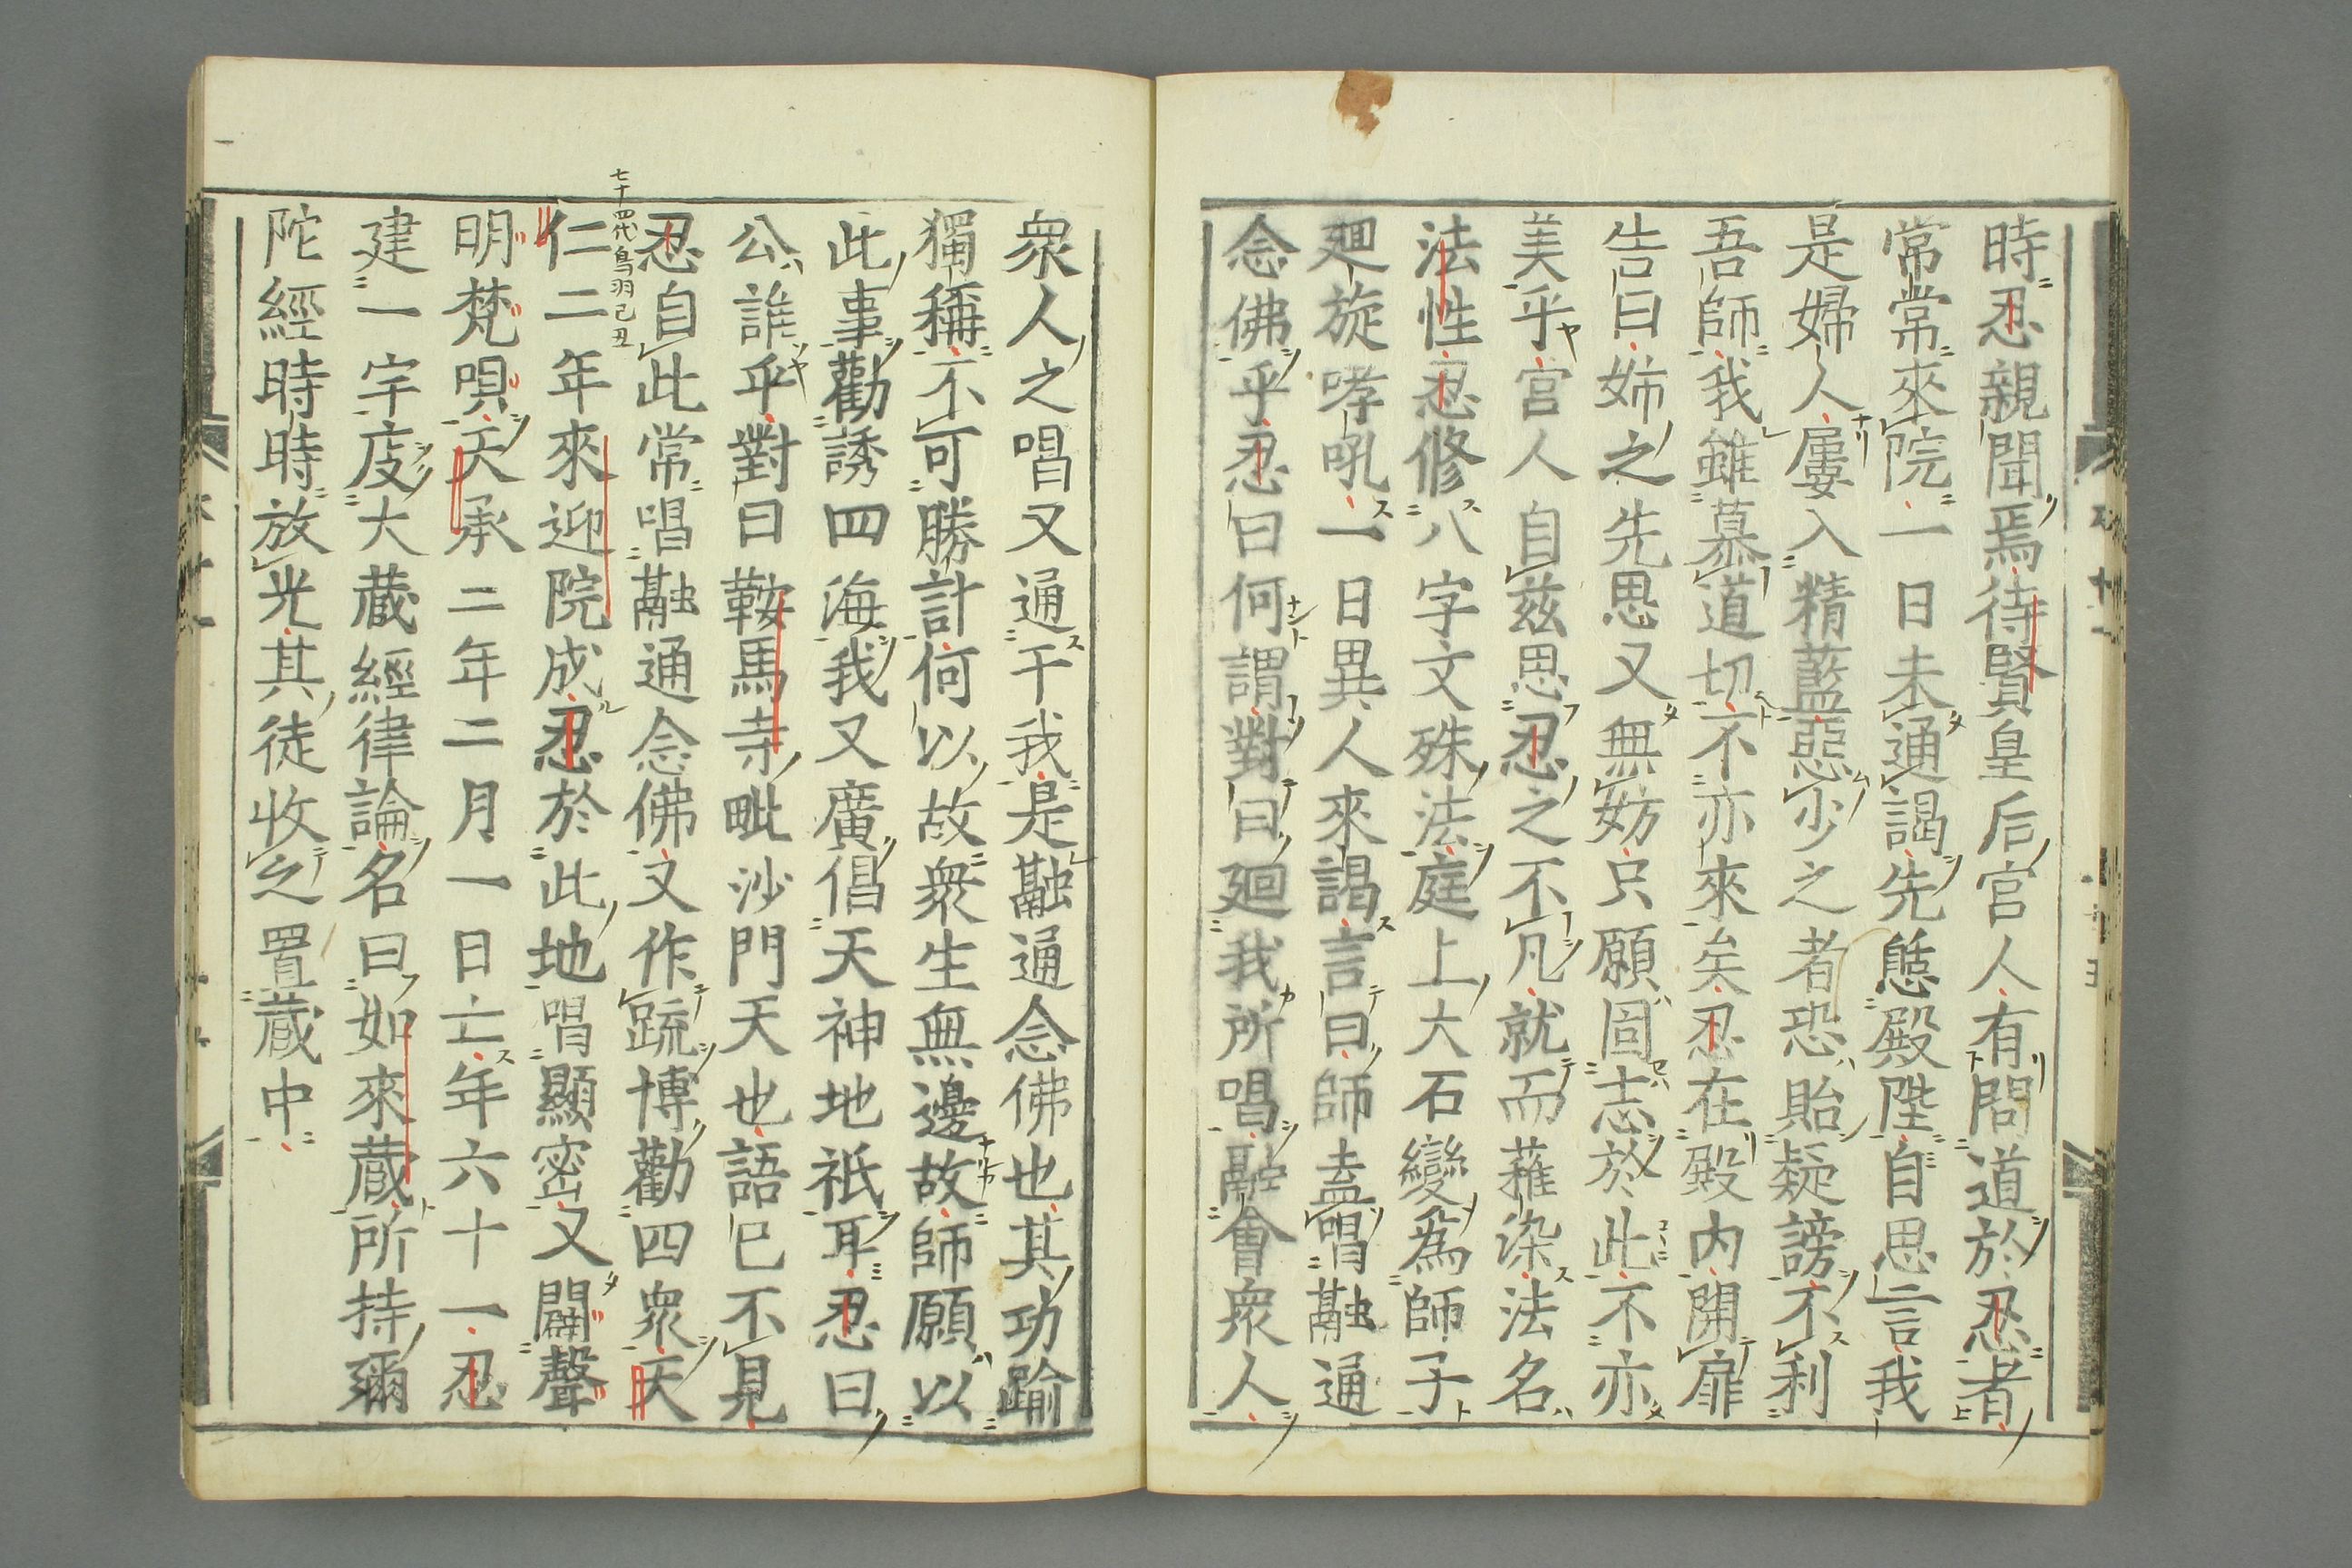 時忍親聞焉待賢皇后宮人有問道於忍者
常常來院一日未通謁先慿殿陛自思言我
是婦人屢入精藍惡少之者恐貽疑謗不利
吾師我雖慕道切不亦來矣忍在殿内開扉
告曰姉之先思又無妨只願固志於此不亦
美乎宮人自兹思忍之不凡就而薙染法名
法性忍修八字文殊法庭上大石變爲師子
廻旋哮吼一日異人來謁言曰師盍唱融通
念佛乎忍曰何謂對曰廻我所唱融會衆人
衆人之唱又通干我是融通念佛也其功踰
獨稱不可勝計何以故衆生無邊故師願以
此事勸誘四海我又廣倡天神地祇耳忍曰
公誰乎對曰鞍馬寺毗沙門天也語已不見
忍自此常唱融通念佛又作疏博勸四衆天
七十四代鳥羽己丑
仁二年來迎院成忍於此地唱顯密又闢聲
明梵唄天承二年二月一日亡年六十一忍
建一宇庋大蔵經律論名曰如來蔵所持彌
陀經時時放光其徒收之置蔵中